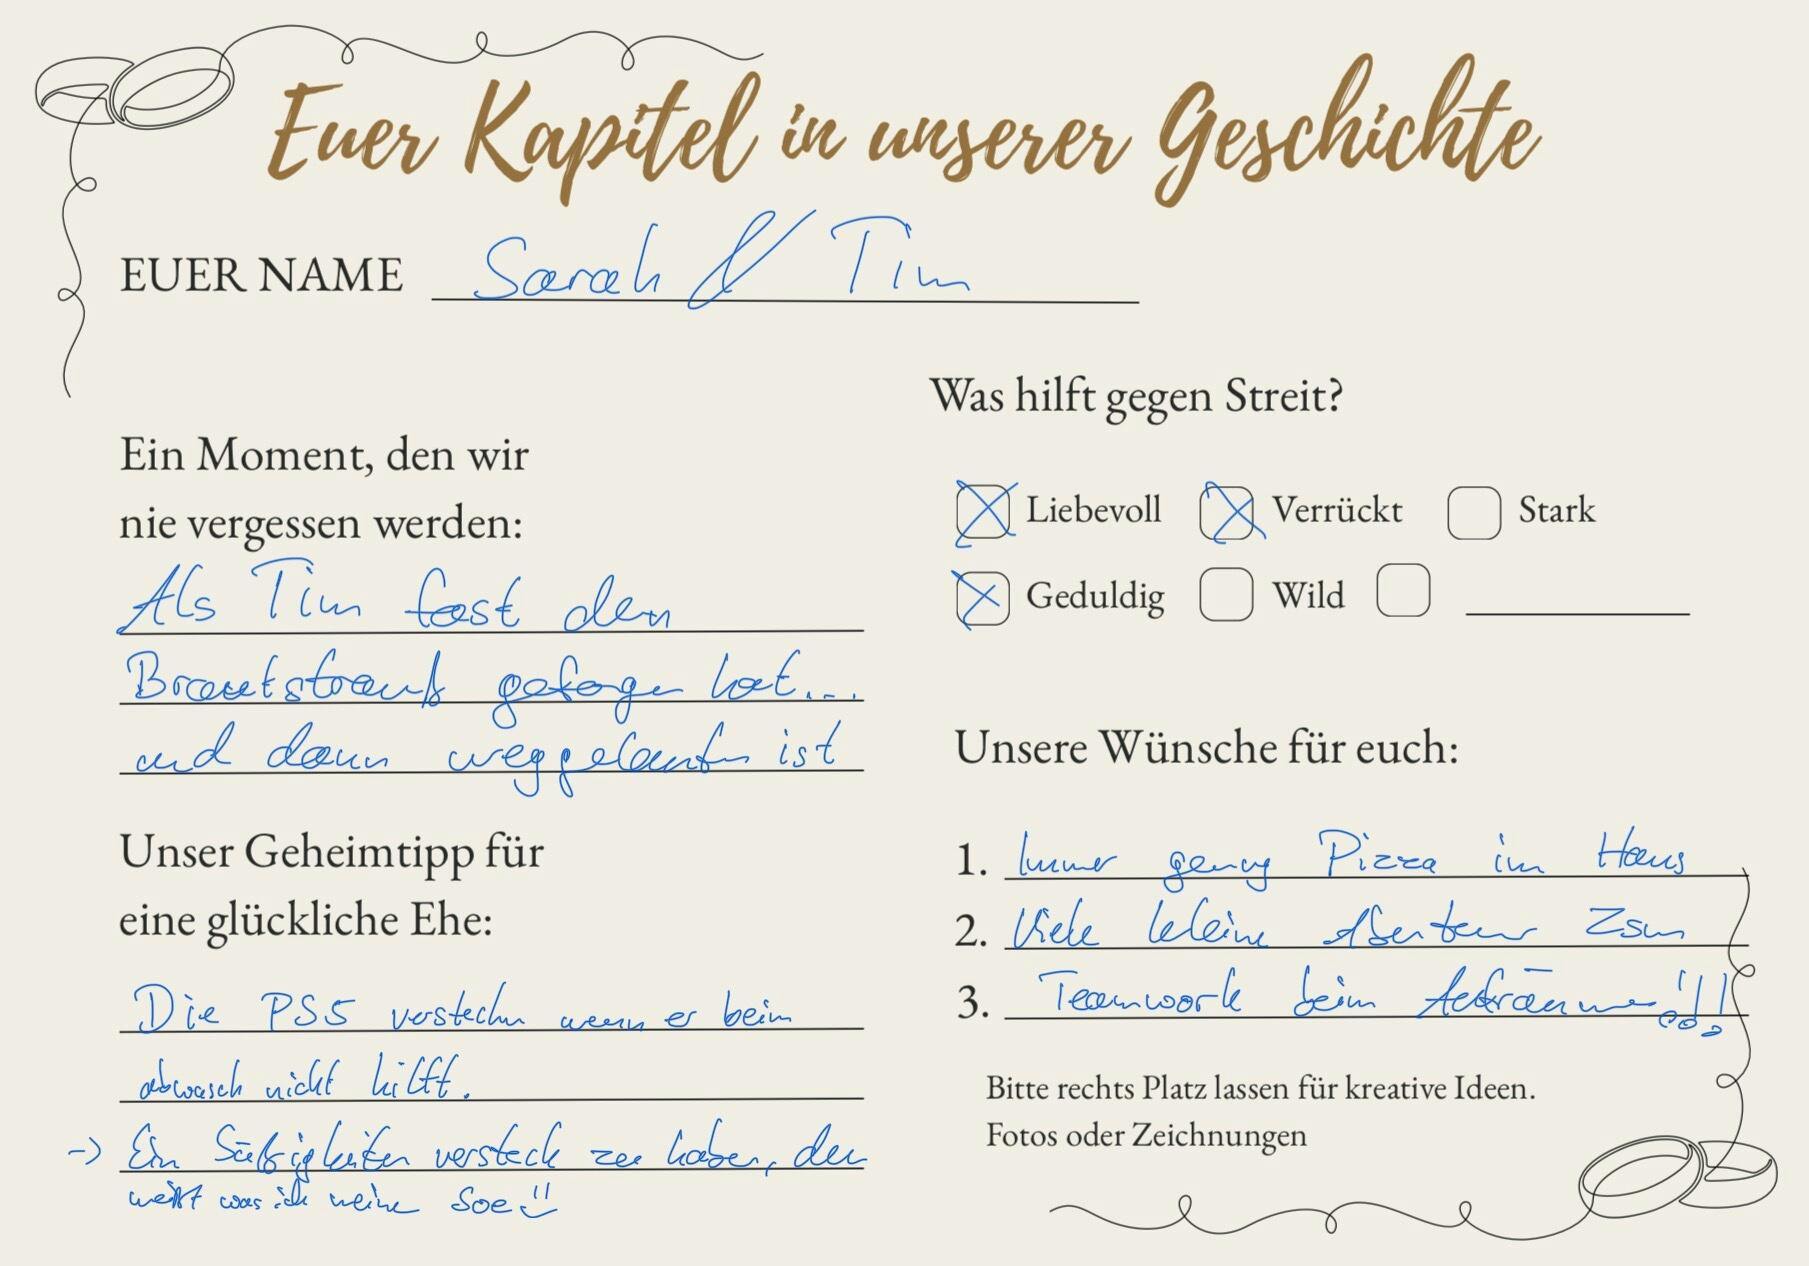 Euer Kapitel in unserer Geschichte
EUER NAME Sarah & Tim
Ein Moment, den wir
nie vergessen werden:
Als Tim fast den
Brautstrauß gefangen hat...
und dann weggelaufen ist
Unser Geheimtipp für
eine glückliche Ehe:
Die PS5 verstecken wenn er beim
abwasch nicht hilft.
-> Ein Süßigkeiten versteck zu haben, du
weißt was ich meine Soe
Was hilft gegen Streit?
Liebevoll Verrückt Stark
Geduldig Wild
Unsere Wünsche für euch:
1. Immer genug Pizza im Haus
2. Viele kleine Abenteuer Zsm
3. Teamwork beim Aufräumen!!!
Bitte rechts Platz lassen für kreative Ideen.
Fotos oder Zeichnungen